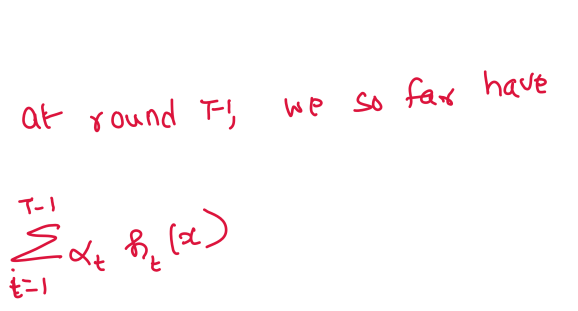 at round T-1, we so far have
T-1
∑ αₜ hₜ(x)
t=1